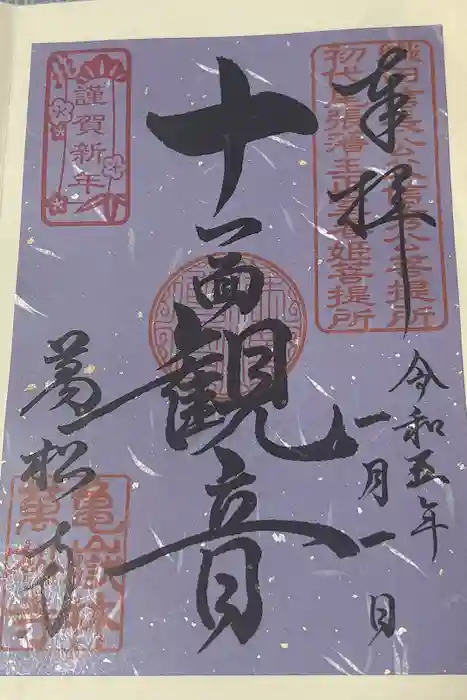 奉拝
織田信長公父信秀公菩提所
初代尾張藩主 春姫菩提所
令和五年
一月一日
十一面観音
謹賀新年
萬松寺
亀嶽林
萬松寺